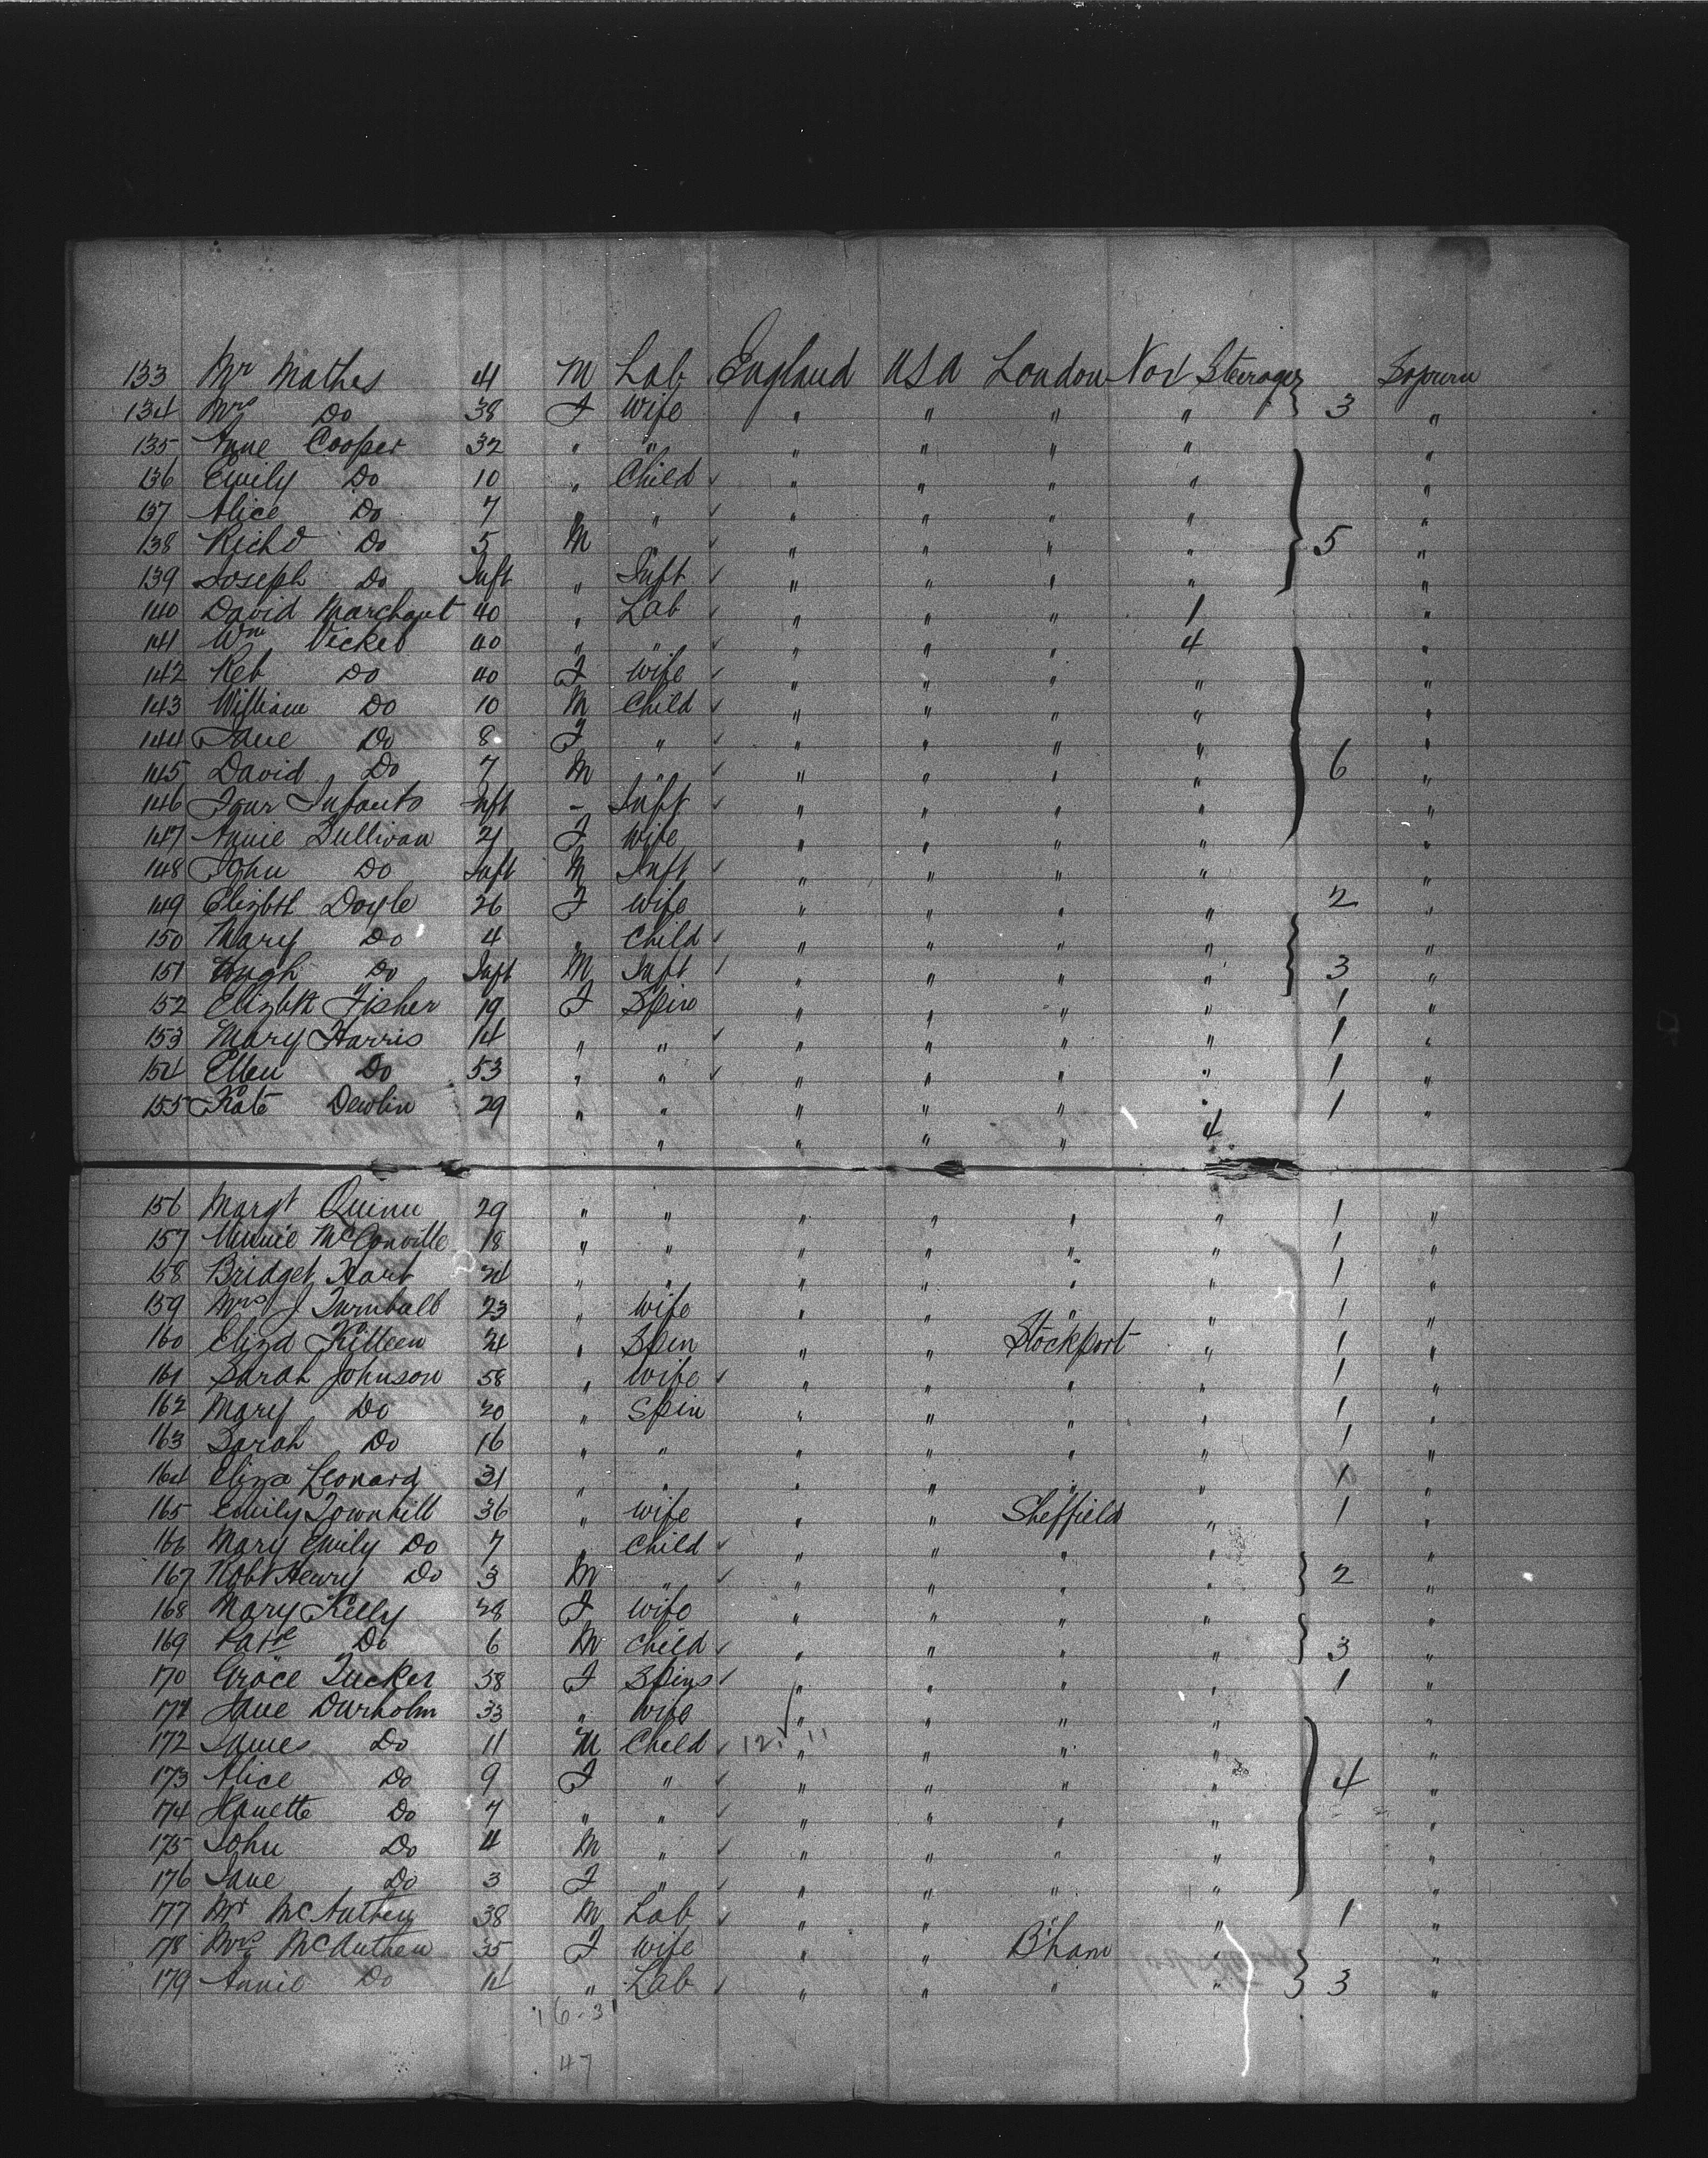 133 Mr Mathes 41 M Lab England USA London Nov Steerage Sojourn
134 Mrs Do 38 F Wife " " " " 3 "
135 Anne Cooper 32 " " " " " " "
136 Emily Do 10 " Child " " " " "
137 Alice Do 7 " " " " " " "
138 Richd Do 5 M " " " " " 5 "
139 Joseph Do Inft " Inft " " " " "
140 David Marchant 40 " Lab " " " 1 "
141 Wm Vicket 40 " " " " " 4 "
142 Reb Do 40 F Wife " " " " "
143 William Do 10 M Child " " " " "
144 Jane Do 8 F " " " " " "
145 David Do 7 M " " " " " 6 "
146 Four Infants Inft - Inft " " " " "
147 Annie Sullivan 21 F Wife " " " " "
148 John Do Inft M Inft " " " " "
149 Elizbth Doyle 26 F Wife " " " " 2 "
150 Mary Do 4 " Child " " " " "
151 Hugh Do Inft M Inft " " " " 3 "
152 Elizbth Fisher 19 F Spin " " " " 1 "
153 Mary Harris 14 " " " " " " 1 "
154 Ellen Do 53 " " " " " " 1 "
155 Kate Dewlin 29 " " " " " " 1 "
" " " " 4
156 Margt Quinn 29 " " " " " " 1 "
157 Minnie McConville 18 " " " " " " 1 "
158 Bridget Hart 24 " " " " " " 1 "
159 Mrs J Turnbull 23 " Wife " " " " 1 "
160 Eliza Killeen 24 " Spin " " Stockport " 1 "
161 Sarah Johnson 58 " Wife " " " " 1 "
162 Mary Do 20 " Spin " " " " 1 "
163 Sarah Do 16 " " " " " " 1 "
164 Eliza Leonard 31 " " " " " " 1 "
165 Emily Townhill 36 " Wife " " Sheffield " 1 "
166 Mary Emily Do 7 " Child " " " " "
167 Robt Henry Do 3 M " " " " " 2 "
168 Mary Kelly 28 F Wife " " " " "
169 Do 6 M Child " " " " 3 "
170 Grace Tucker 38 F Spins " " " " 1 "
171 Jane Durholm 33 " Wife " " " " "
172 James Do 11 M Child 12. 11 " " " "
173 Alice Do 9 F " " " " " 4 "
174 Hanette Do 7 " " " " " " "
175 John Do 4 M " " " " " "
176 Jane Do 3 F " " " " " "
177 Mr McAuthen 38 M Lab " " " " 1 "
178 Mrs McAuthen 35 F Wife " " B'ham " "
179 Annie Do 14 " Lab " " " " 3 "
16-31
47